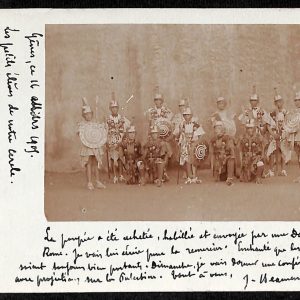 Gênes, ce 16
Les petits élèves de notre cercle.
La poupée a été achetée, habillée et envoyée par une
Rome. Je vais lui écrire pour la remercier. que
toujours bien portants. Dimanche, je vais donner une
avec projections, sur la Palestine. tout à vous, J.